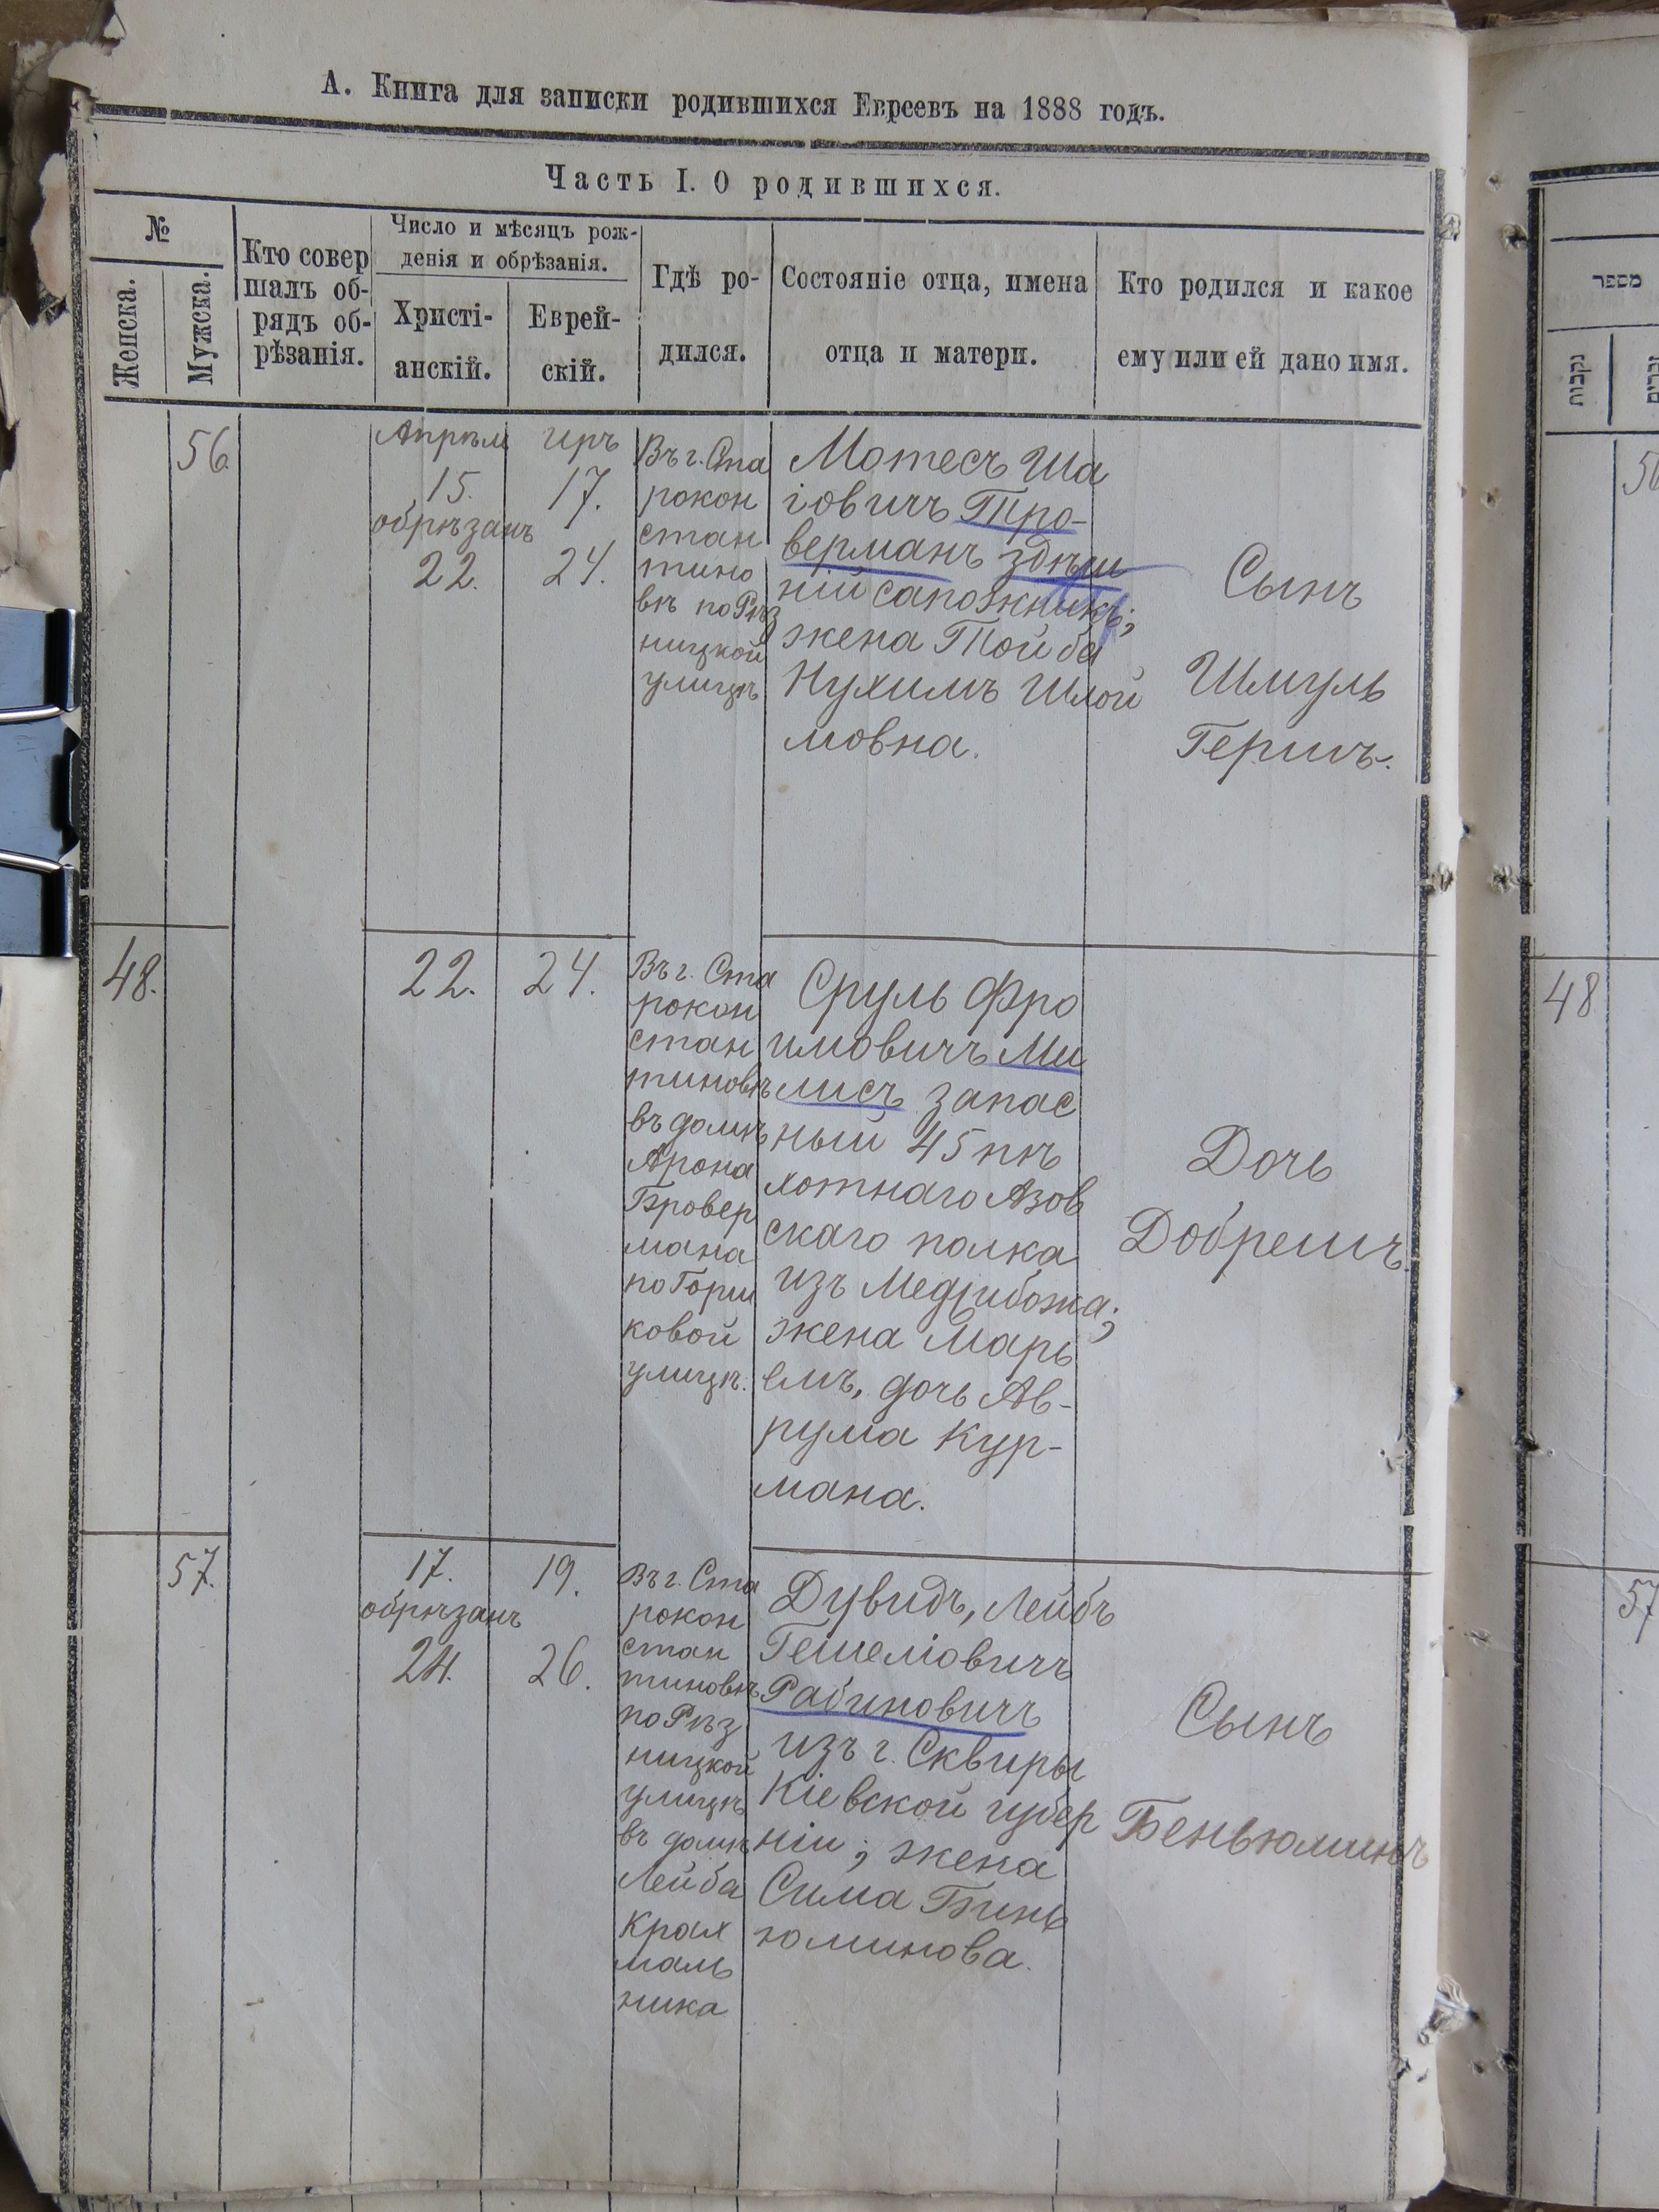 А. Книга для записки родившихся Евреевъ на 1888 годъ.
Часть I. О родившихся.
№
Женска.
Мужска.
Кто совер
шалъ об-
рядъ об-
рѣзанія.
Число и мѣсяцъ рож-
денія и обрѣзанія.
Христі-
анскій.
Еврей-
скій.
Гдѣ ро-
дился.
Состояніе отца, имена
отца и матери.
Кто родился и какое
ему или ей дано имя.
56.
Апрѣль
15.
обрѣзанъ
22.
иръ
17.
24.
Въ г. Ста
рокон
стан
тино
вѣ по Рѣз
ницкой
улицѣ
Мотесъ Ша
іовичъ Тро-
верманъ здѣш
ній сапожникъ;
жена Тойба
Нухимъ Шлой
мовна.
Сынъ
Шмуль
Гершъ.
48.
22.
24.
Въ г. Ста
рокон
стан
тиновѣ
въ домѣ
Арона
Бровер
мана
по Горш
ковой
улицѣ.
Сруль Фро
имовичъ Ми
лисъ запас
ный 45 пѣ
хотнаго Азов
скаго полка
изъ Меджибожа;
жена Марь
емъ, дочь Ав-
рума Кур-
мана.
Дочь
Добрешъ.
57.
17.
обрѣзанъ
24.
19.
26.
Въ г. Ста
рокон
стан
тиновѣ
по Рѣз
ницкой
улицѣ
въ домѣ
Лейба
Крах
маль
ника
Дувидъ, Лейбъ
Гешеліовичъ
Рабиновичъ
изъ г. Сквиры
Кіевской губер
ніи; жена
Сима Бинь
юминова.
Сынъ
Беньюминъ
מספר
נקבות
זכרים
48
57